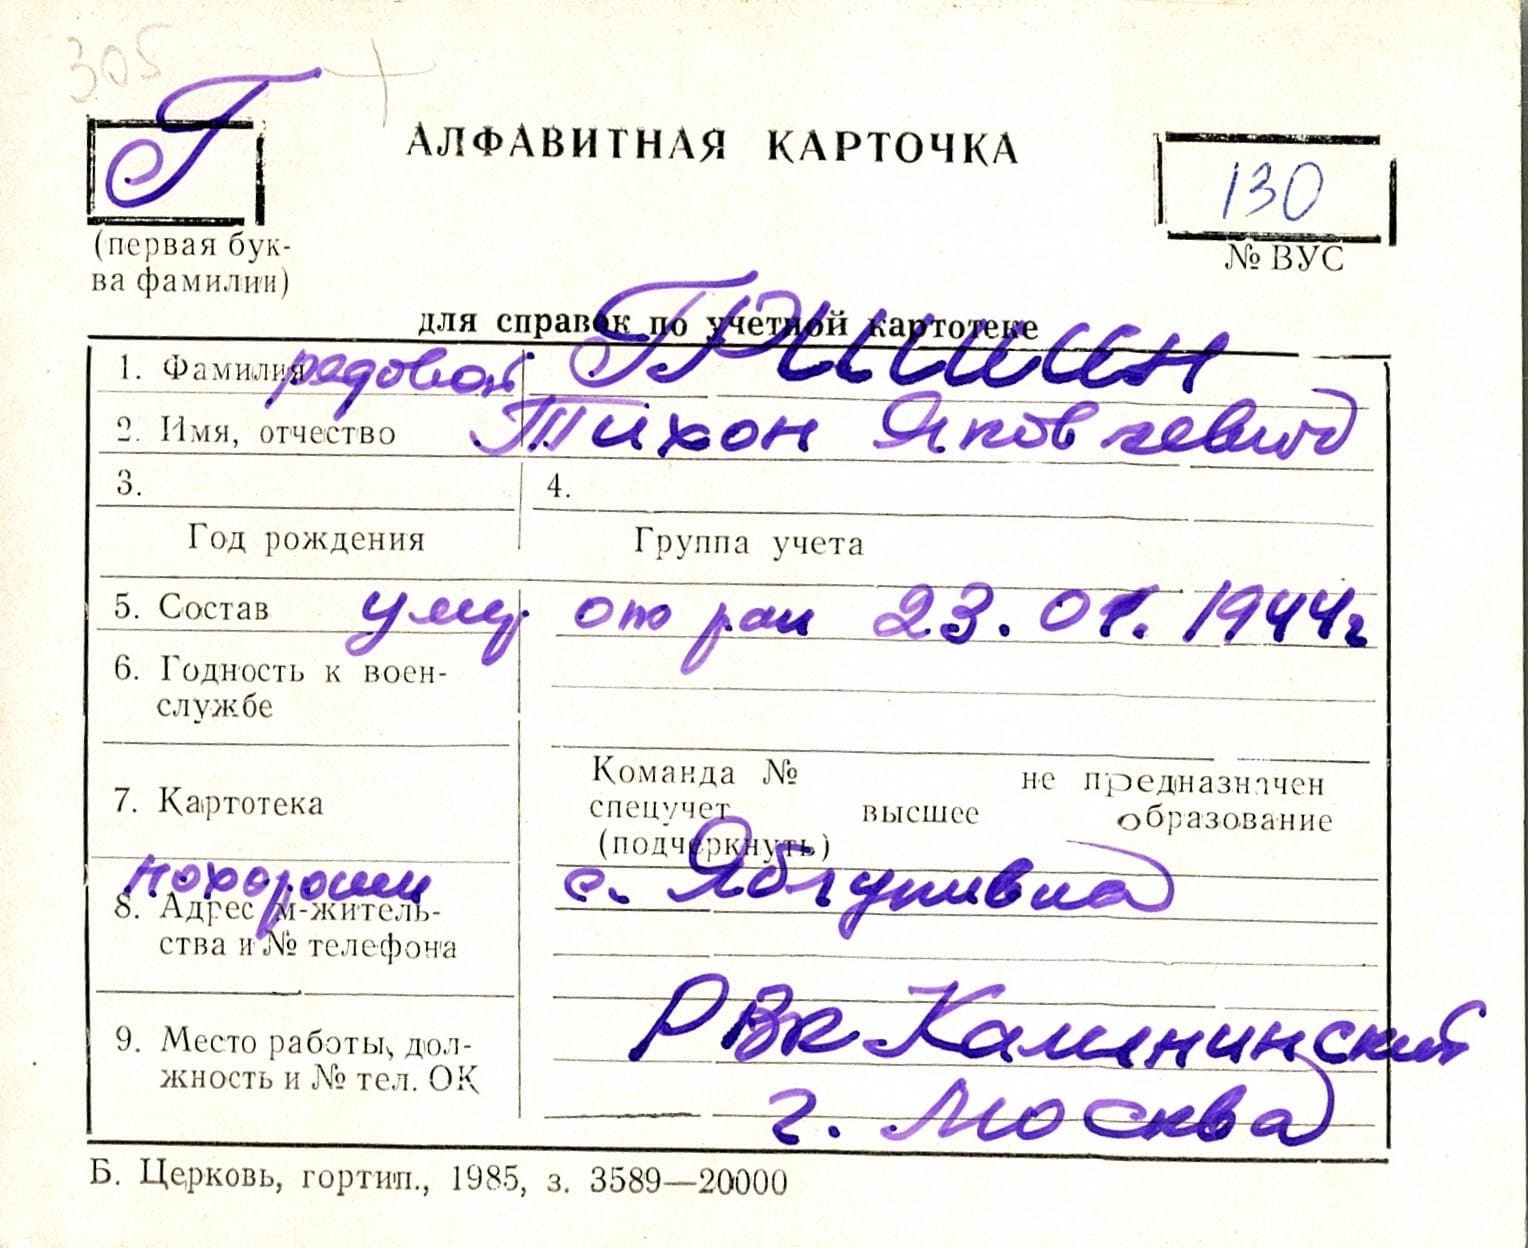 305
Г
АЛФАВИТНАЯ КАРТОЧКА
130
(первая бук-
ва фамилии)
№ ВУС
для справок по учетной картотеке
1. Фамилия рядовой ГРИШИН
2. Имя, отчество Тихон Яковлевич
3.
4.
Год рождения
Группа учета
5. Состав умер от ран 23.01.1944г
6. Годность к воен-
службе
7. Картотека
Команда № не предназначен
спецучет высшее образование
(подчеркнуть)
похоронен с.
8. Адрес м-житель-
ства и № телефона
РВК Калининский
9. Место работы, дол-
жность и № тел. ОК
г. Москва
Б. Церковь, гортип., 1985, з. 3589—20000